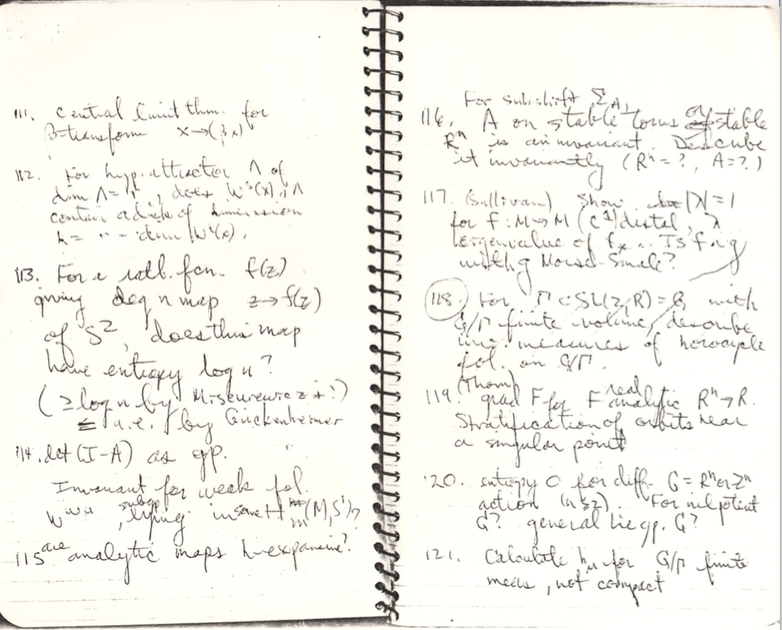 111. Central limit thm. for
β-transform x→(βx)
112. For hyp. attractor Λ of
dim Λ = k, does Wˢ(x)∩Λ
contain a disk of dimension
k = ... - dim Wᵘ(x).
113. For a ratl. fcn. f(z)
giving deg n map z→f(z)
of S², does this map
have entropy log n?
(≥ log n by Misiurewicz + !)
≤ u.e. by Guckenheimer
114. det(I-A) as gp.
Invariant for weak fol.
Wʷᵘ, lying in some H (M,S¹)?
115 are analytic maps h-expansive?
For subshift Σ_A,
116. A on stable torus or unstable
Rⁿ is an invariant. Describe
it invariantly (Rⁿ=?, A=?)
117. (Sullivan) Show |λ|=1
for f:M→M (C¹) distal, λ
eigenvalue of f_*. Is f ~ g
with g Morse-Smale?
118. For Γ⊂SL(2,R)=G, with
G/Γ finite volume, describe
inv. measures of horocycle
fol. on G/Γ.
(Thom)
119. grad F for F real analytic Rⁿ→R.
Stratification of orbits near
a singular point
120. entropy 0 for diff. G=Rⁿ or Zⁿ
action (n≥2). For nilpotent
G? general Lie gp. G?
121. Calculate h_μ for G/Γ finite
meas, not compact